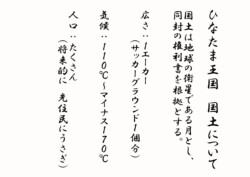 ひなたま王国 国土について
国土は地球の衛星である月とし、
同封の権利書を根拠とする。
広さ：1エーカー
(サッカーグラウンド1個分)
気候：110℃~マイナス170℃
人口：たくさん
(将来的に 先住民にうさぎ)